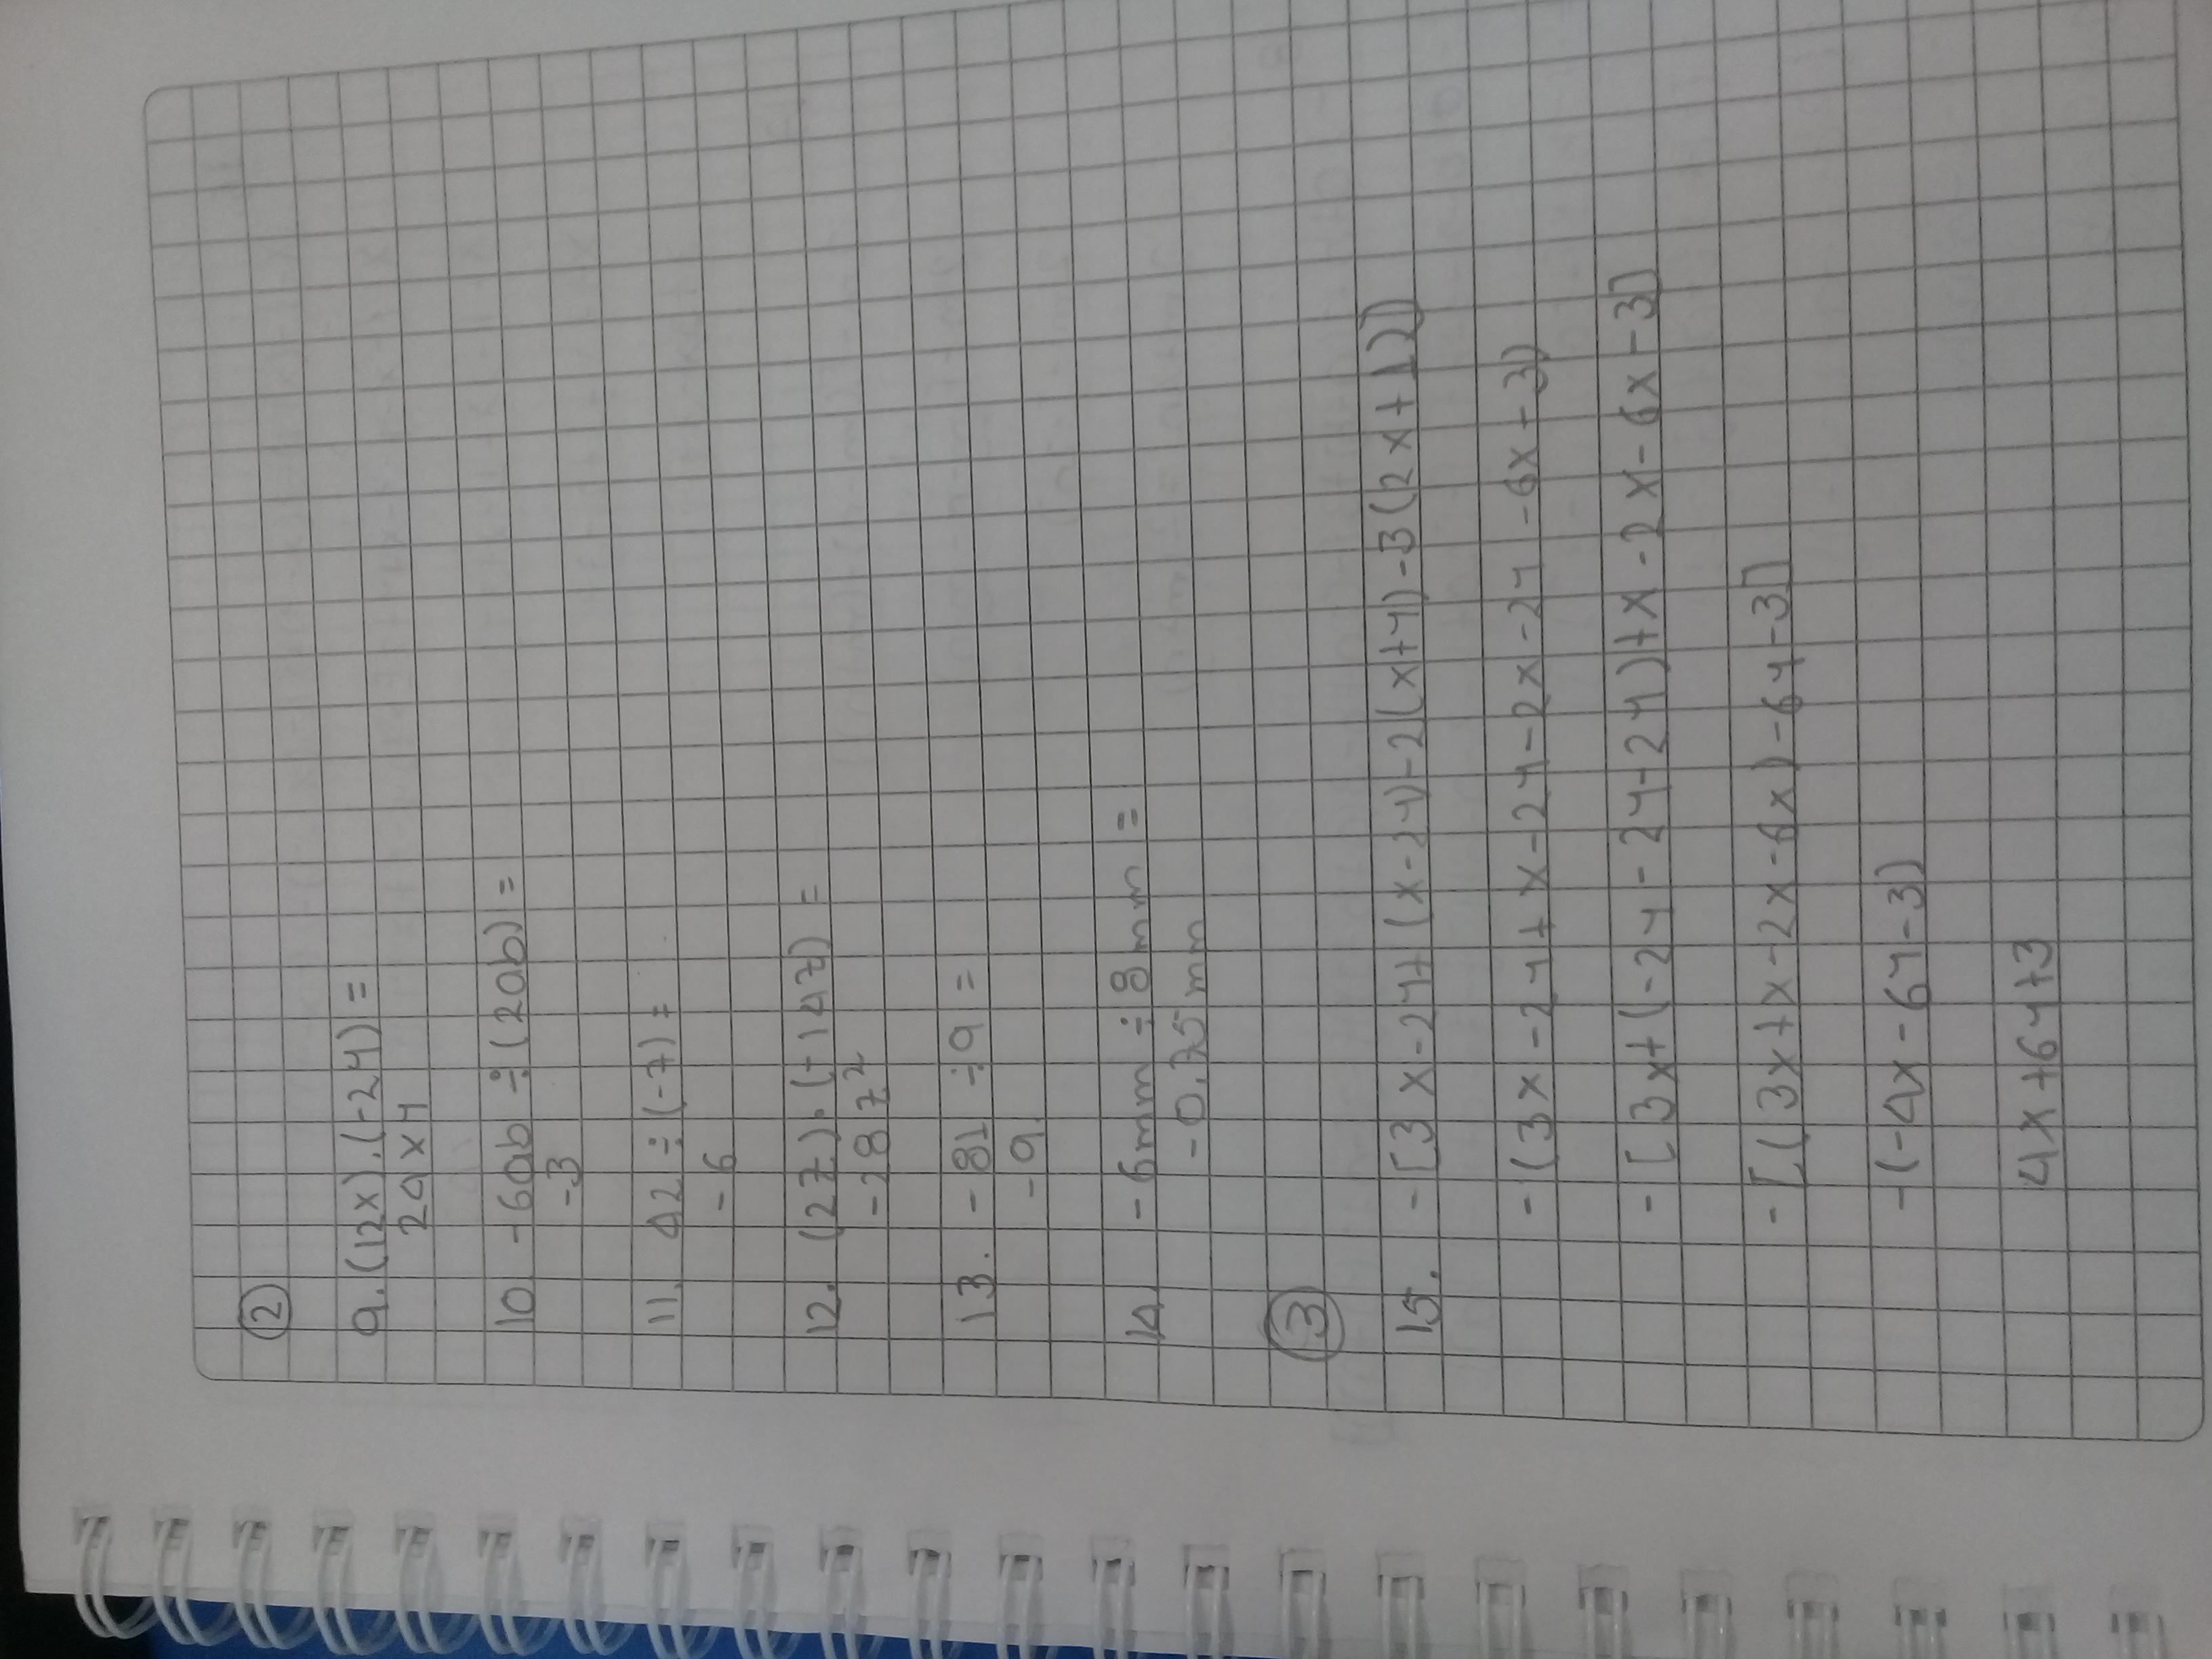 2
9. (12x).(-2y) =
24xy
10 -6ab ÷ (2ab) =
-3
11. 42 ÷ (-7) =
-6
12. (2z).(-14z) =
-28z²
13. -81 ÷ 9 =
-9
14 -6mn ÷ 8mn =
-0.75mn
3
15. -[3x-2y+(x-2y)-2(x+y)-3(2x+1)]
-(3x-2y+x-2y-2x-2y-6x-3)
-[3x+(-2y-2y-2y)+x-2x-6x-3]
-[(3x+x-2x-6x)-6y-3]
-(-4x-6y-3)
4x+6y+3